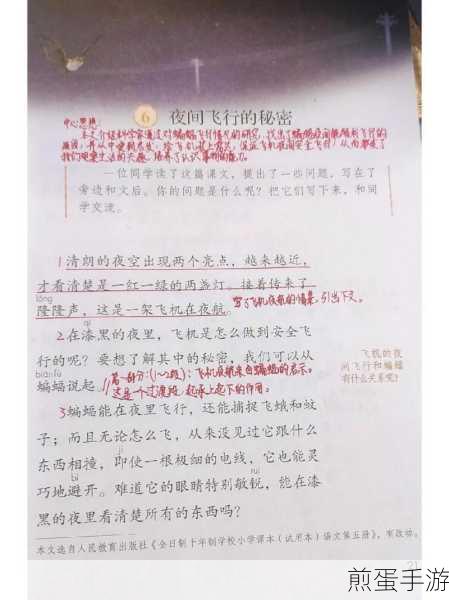 6 夜间飞行的秘密
中心思想:
本文介绍科学家通过对蝙蝠飞行情况的研究,找出了蝙蝠夜间能顺利飞行的
原因,并从中受到启发,给飞机装上雷达,保证飞机夜间安全飞行,从而
一位同学读了这篇课文,提出了一些问题,写在了
旁边和文后。你的问题是什么呢?把它们写下来,和同
学交流。
1清朗的夜空出现两个亮点,越来越近,
才看清楚是一红一绿的两盏灯。接着传来了
lóng
隆隆声,这是一架飞机在夜航。写了飞机夜航的情景,引出下文。
qī
2在漆黑的夜里,飞机是怎么做到安全飞
行的呢?要想了解其中的秘密,我们可以从
biān fú
蝙蝠说起。//第一部分:(1~2段):飞机夜航来自蝙蝠的启示。
这是个过渡段,起承上起下的作用。
飞机的夜
间飞行和蝙蝠
有什么关系呢?
3蝙蝠能在夜里飞行,还能捕捉飞蛾和蚊
子;而且无论怎么飞,从来没见过它跟什么
jí
东西相撞,即使一根极细的电线,它也能灵
bì ruì
巧地避开。难道它的眼睛特别敏锐,能在漆
黑的夜里看清楚所有的东西吗?
本文选自人民教育出版社《全日制十年制学校小学课本(试用本)语文第五册》,有改动。
21
煎蛋手游